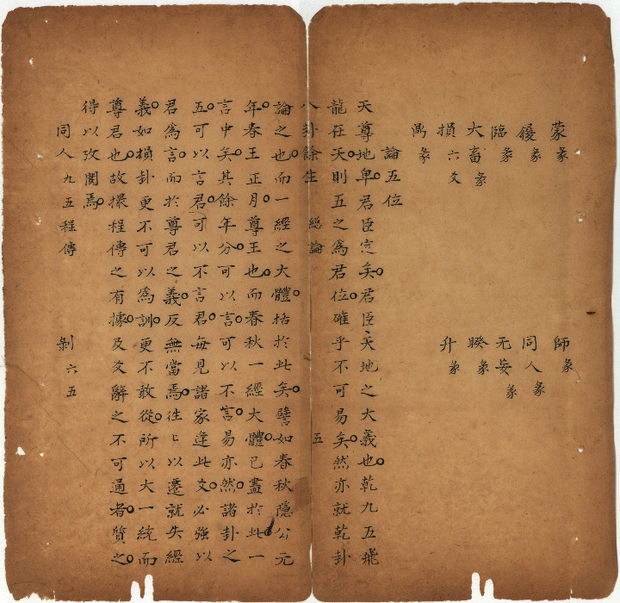 蒙彖 師彖
彖 同人彖
臨彖 无妄彖
大畜彖 睽彖
損六爻 升彖
彖
論五位
天尊地卑君臣定矣君臣天地之大義也乾九五飛
龍在天則五之為君位確乎不可易矣然亦就乾卦
八卦餘生 總論 五
論之也而一經之大體括於此矣譬如春秋隱公元
年春王正月尊王也而春秋一經大體已盡於此一
言中矣其餘年分可以言可以不言易亦然諸卦之
五可以言君可以不言君每見諸家逢此爻必強以
君為言而於尊君之義反無當焉往〻以遷就失經
義如損卦更不可以為訓更不敢從所以大一統而
尊君也故撮程傳之有據及爻辭之不可通者質之
待以攷閱焉
同人九五程傳 剝六五